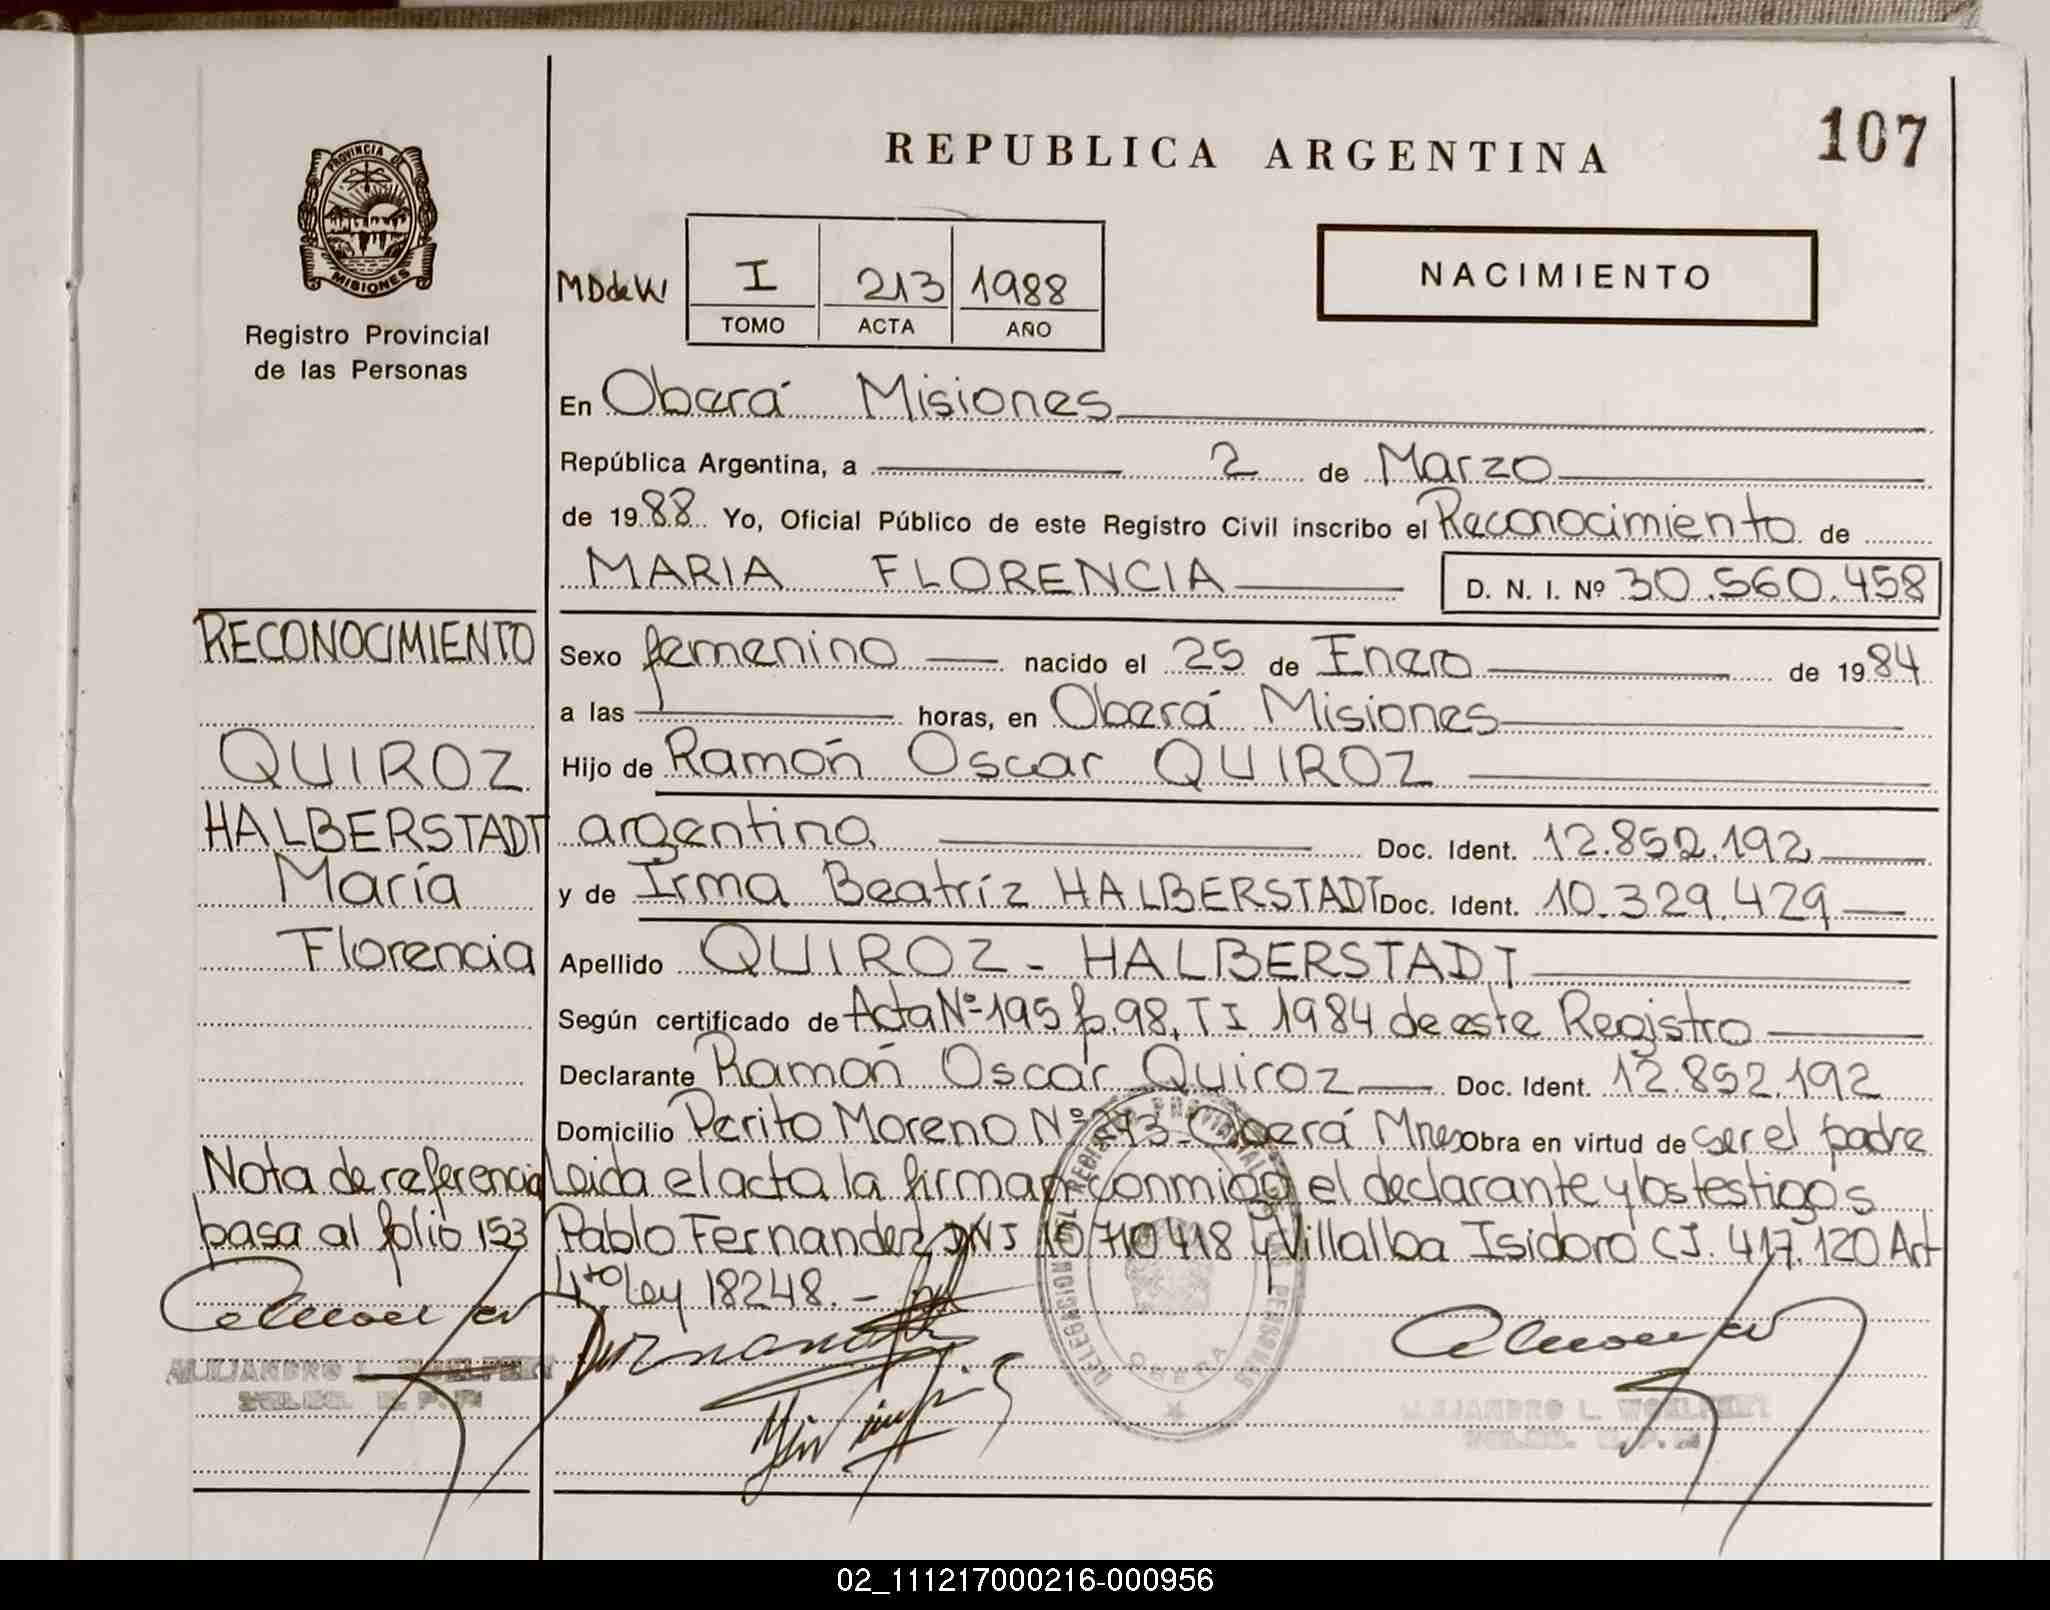 REPUBLICA ARGENTINA
107
PROVINCIA DE
MISIONES
Registro Provincial
de las Personas
I 213 1988
TOMO ACTA AÑO
NACIMIENTO
En Oberá Misiones
República Argentina, a 2 de Marzo
de 1988 Yo, Oficial Público de este Registro Civil inscribo el Reconocimiento de
MARIA FLORENCIA D. N. I. Nº 30.560.458
RECONOCIMIENTO
QUIROZ
HALBERSTADT
María
Florencia
Sexo femenino nacido el 25 de Enero de 1984
a las horas, en Oberá Misiones
Hijo de Ramón Oscar QUIROZ
argentino Doc. Ident. 12.852.192
y de Irma Beatríz HALBERSTADT Doc. Ident. 10.329.429
Apellido QUIROZ - HALBERSTADT
Según certificado de Acta Nº 195 fo. 98, T I 1984 de este Registro
Declarante Ramón Oscar Quiroz Doc. Ident. 12.852.192
Domicilio Perito Moreno Nº 273 - Oberá Mnes Obra en virtud de ser el padre
Leida el acta la firman conmigo el declarante y los testigos
Pablo Fernandez DNI 10710418 y Villalba Isidoro CI. 417.120 Art
4to Ley 18248. -
Nota de referencia
pasa al folio 153
ALEJANDRO L.
ALEJANDRO L. WOHLFEHRT
02_111217000216-000956